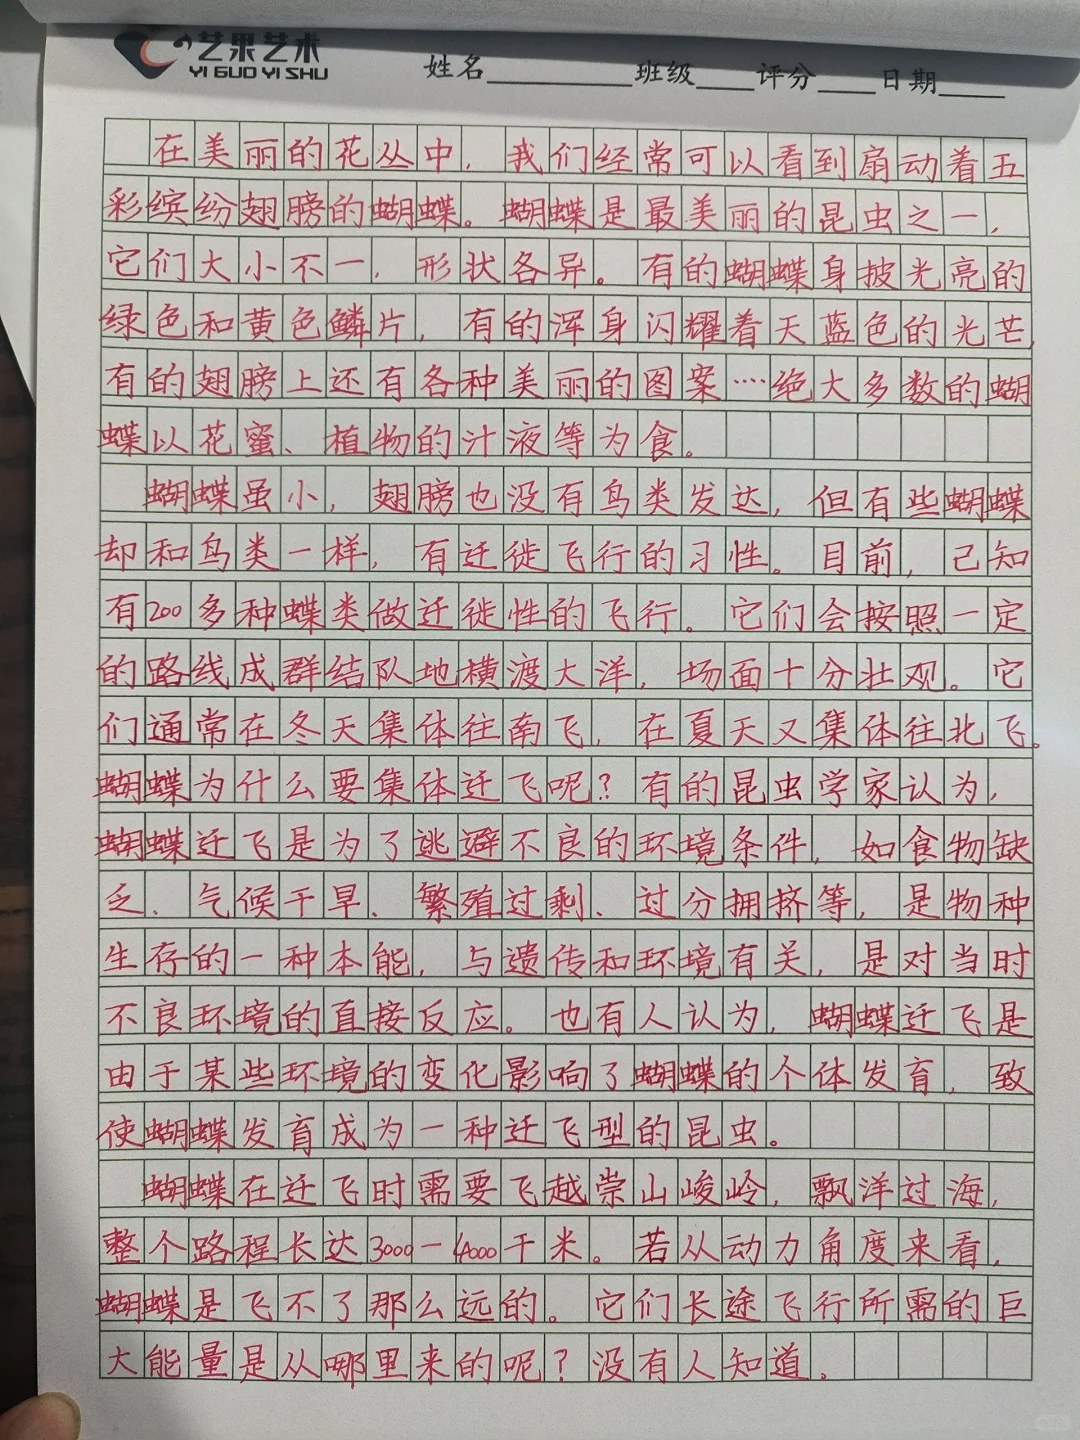 艺果艺术
YI GUO YI SHU
姓名 班级 评分 日期
在美丽的花丛中，我们经常可以看到扇动着五
彩缤纷翅膀的蝴蝶。蝴蝶是最美丽的昆虫之一，
它们大小不一，形状各异。有的蝴蝶身披光亮的
绿色和黄色鳞片，有的浑身闪耀着天蓝色的光芒，
有的翅膀上还有各种美丽的图案……绝大多数的蝴
蝶以花蜜、植物的汁液等为食。
蝴蝶虽小，翅膀也没有鸟类发达，但有些蝴蝶
却和鸟类一样，有迁徙飞行的习性。目前，已知
有200多种蝶类做迁徙性的飞行。它们会按照一定
的路线成群结队地横渡大洋，场面十分壮观。它
们通常在冬天集体往南飞，在夏天又集体往北飞。
蝴蝶为什么要集体迁飞呢？有的昆虫学家认为，
蝴蝶迁飞是为了逃避不良的环境条件，如食物缺
乏、气候干旱、繁殖过剩、过分拥挤等，是物种
生存的一种本能，与遗传和环境有关，是对当时
不良环境的直接反应。也有人认为，蝴蝶迁飞是
由于某些环境的变化影响了蝴蝶的个体发育，致
使蝴蝶发育成为一种迁飞型的昆虫。
蝴蝶在迁飞时需要飞越崇山峻岭，飘洋过海，
整个路程长达3000—4000千米。若从动力角度来看，
蝴蝶是飞不了那么远的。它们长途飞行所需的巨
大能量是从哪里来的呢？没有人知道。